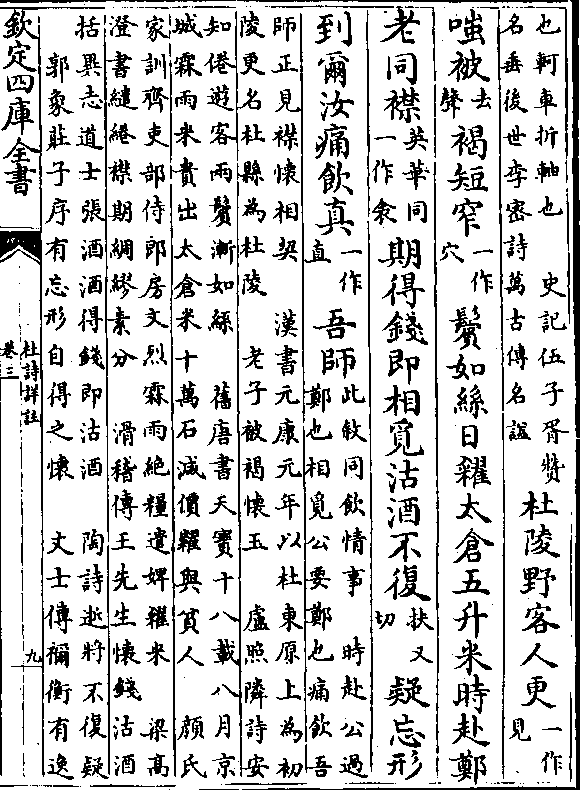 也軻車折軸也　史記伍子胥贊
名垂後世李密詩萬古傳名諡
杜陵野客人更一作見
嗤被去聲褐短窄一作穴鬢如絲日糴太倉五升米時赴鄭
老同襟英華同一作衾期得錢即相覓沽酒不復扶又切疑忘形
到爾汝痛飲真一作直吾師
此敘同飲情事　時赴公過
鄭也相覓公要鄭也痛飲吾
師正見襟懷相契　漢書元康元年以杜東原上為初
陵更名杜縣為杜陵　老子被褐懷玉　盧照隣詩安
知倦遊客兩鬢漸如絲　舊唐書天寳十八載八月京
城霖雨米貴出太倉米十萬石減價糴與貧人　顏氏
家訓齊吏部侍郎房文烈霖雨絶糧遣婢糴米　梁髙
澄書繾綣襟期綢繆素分　滑稽傳王先生懷錢沽酒
括異志道士張酒酒得錢即沽酒　陶詩逝將不復疑
郭象莊子序有忘形自得之懷　文士傳禰衡有逸
欽定四庫全書
杜詩詳註
卷三
九